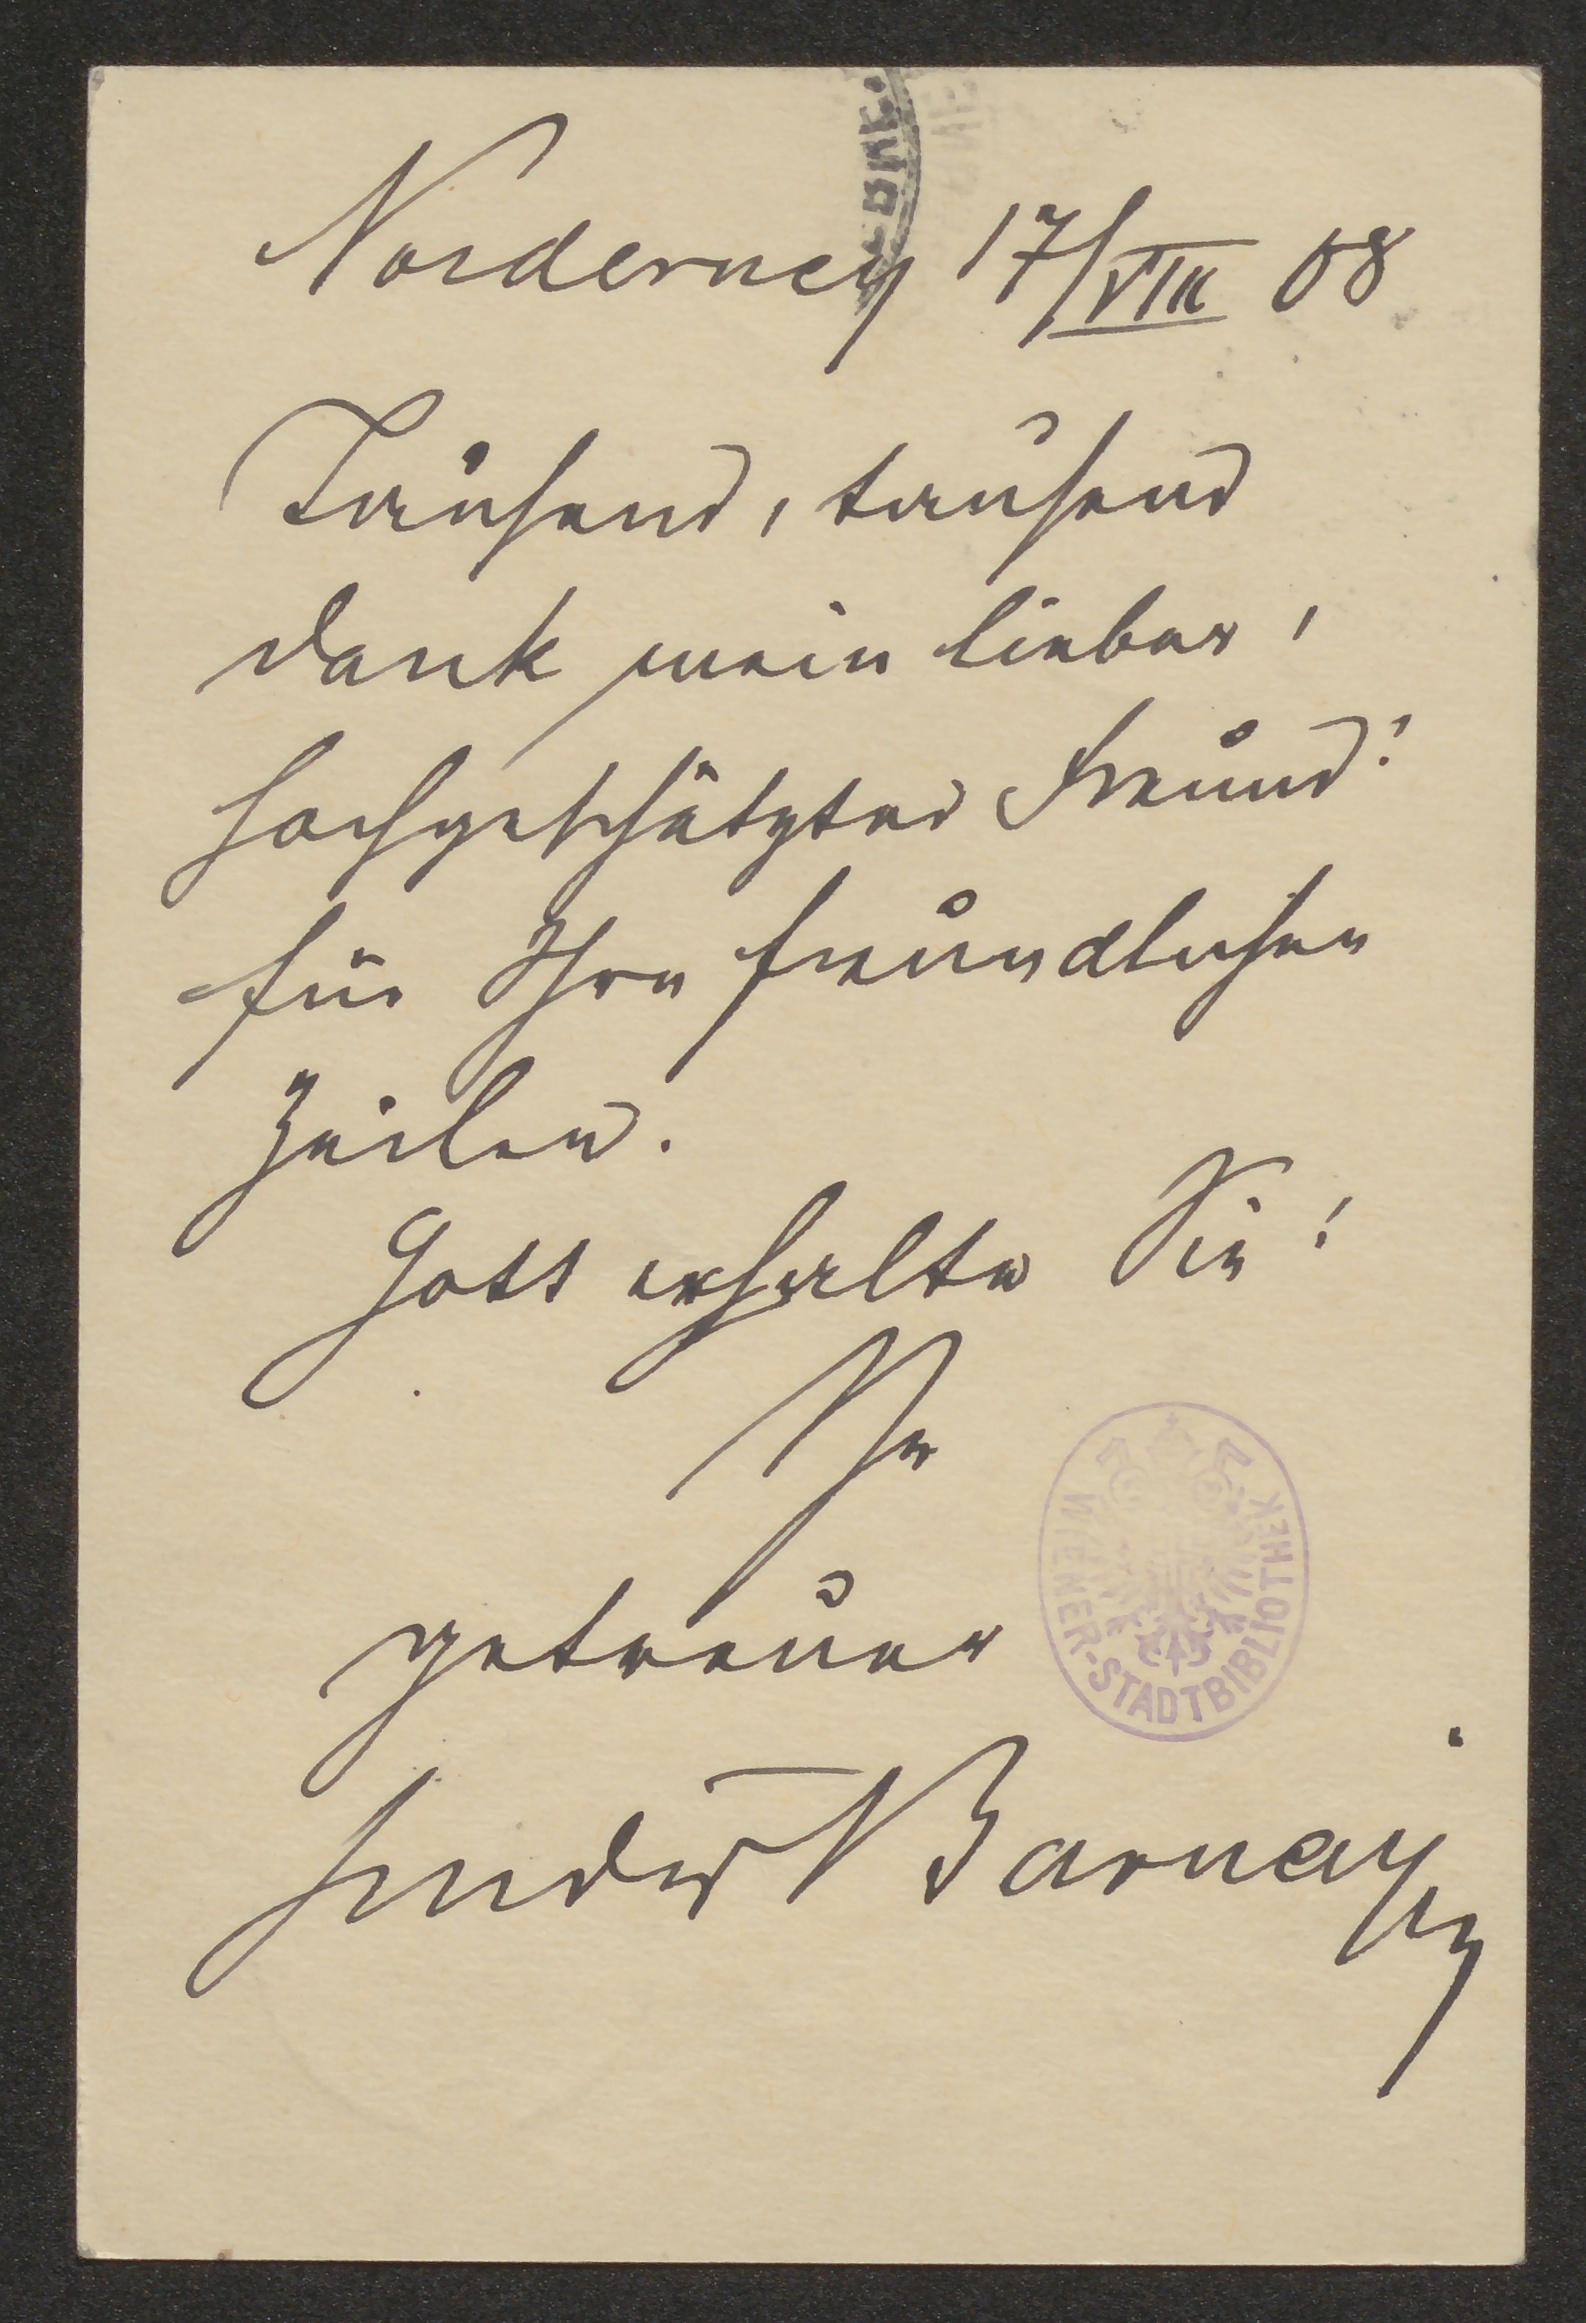 Norderney 17/VIII 08
Tausend, tausend
Dank mein lieber,
hochgeschätzter Freund!
für Ihre freundlichen
Zeilen.
Gott erhalte Sie!
Ihr
getreuer
Ludw Barnay
WIENER-STADTBIBLIOTHEK